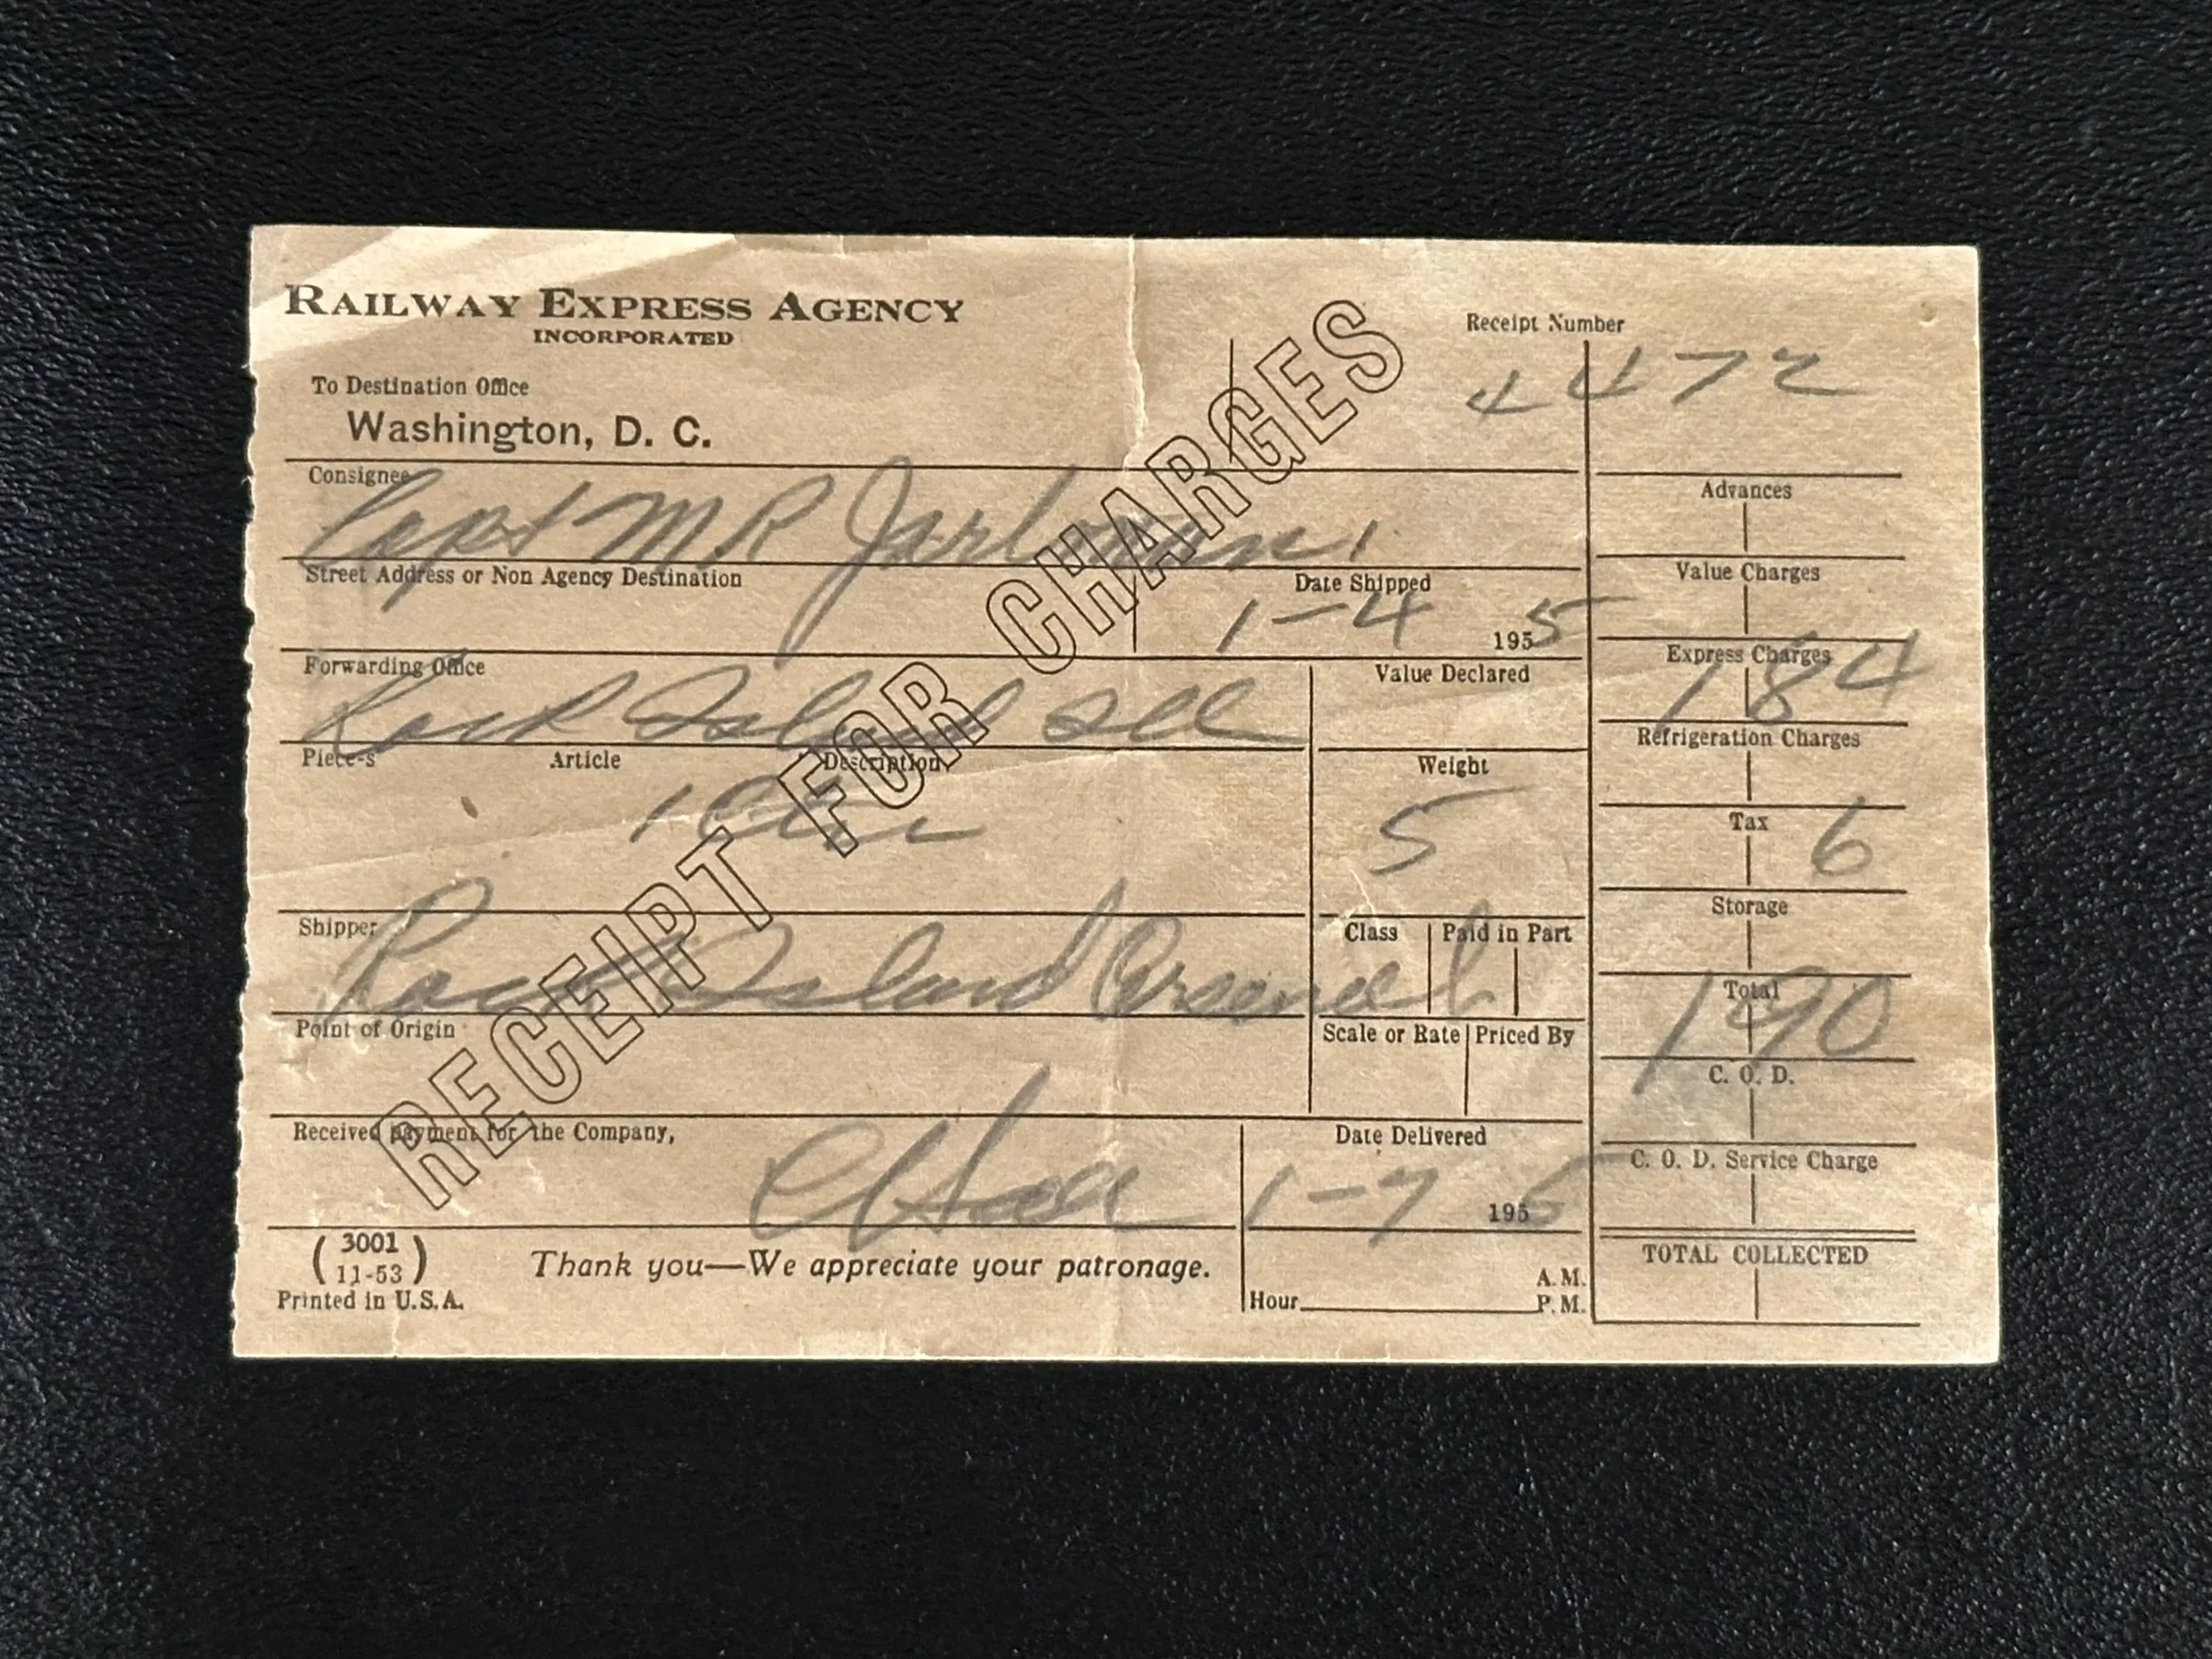 RAILWAY EXPRESS AGENCY
INCORPORATED
Receipt Number
4472
To Destination Office
Washington, D. C.
RECEIPT FOR CHARGES
Consignee
Capt M R
Street Address or Non Agency Destination
Date Shipped
1-4 1955
Forwarding Office
Rock Island Ill
Value Declared
Piece-s Article Description
1
Weight
5
Shipper
Rock Island Arsenal
Class Paid in Part
Point of Origin
Scale or Rate Priced By
Received payment for the Company,
Date Delivered
1-7 1955
(3001
11-53)
Printed in U.S.A.
Thank you—We appreciate your patronage.
Hour A.M.
P.M.
Advances
Value Charges
Express Charges
1 84
Refrigeration Charges
Tax
6
Storage
Total
1 90
C. O. D.
C. O. D. Service Charge
TOTAL COLLECTED